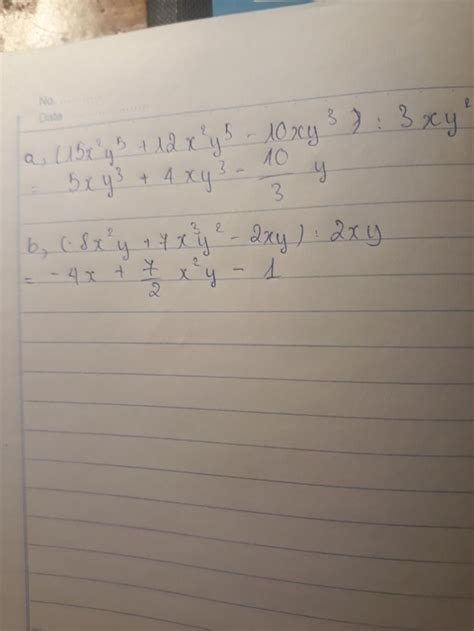 No. ............
Date ............
a, (15x²y⁵ + 12x²y⁵ - 10xy³) : 3xy²
= 5xy³ + 4xy³ - 10/3 y
b, (-8x²y + 7x³y² - 2xy) : 2xy
= -4x + 7/2 x²y - 1